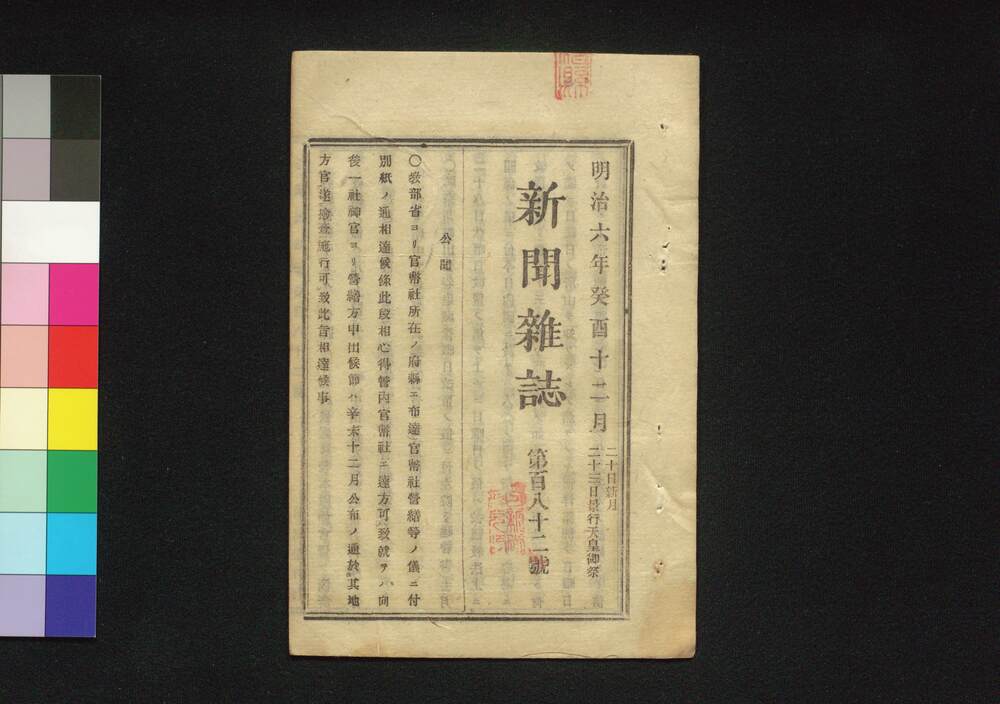 明治六年癸酉十二月
二十日新月
二十三日景行天皇御祭
新聞雜誌
第百八十二號
公聞
〇敎部省ヨリ官幣社所在ノ府縣ニ布達官幣社營繕等ノ儀ニ付
別紙ノ通相達候條此段相心得管內官幣社ニ達方可致就テハ向
後一社神官ヨリ營繕方申出候節ハ辛未十二月公布ノ通於其地
方官遂檢査施行可致此旨相達候事